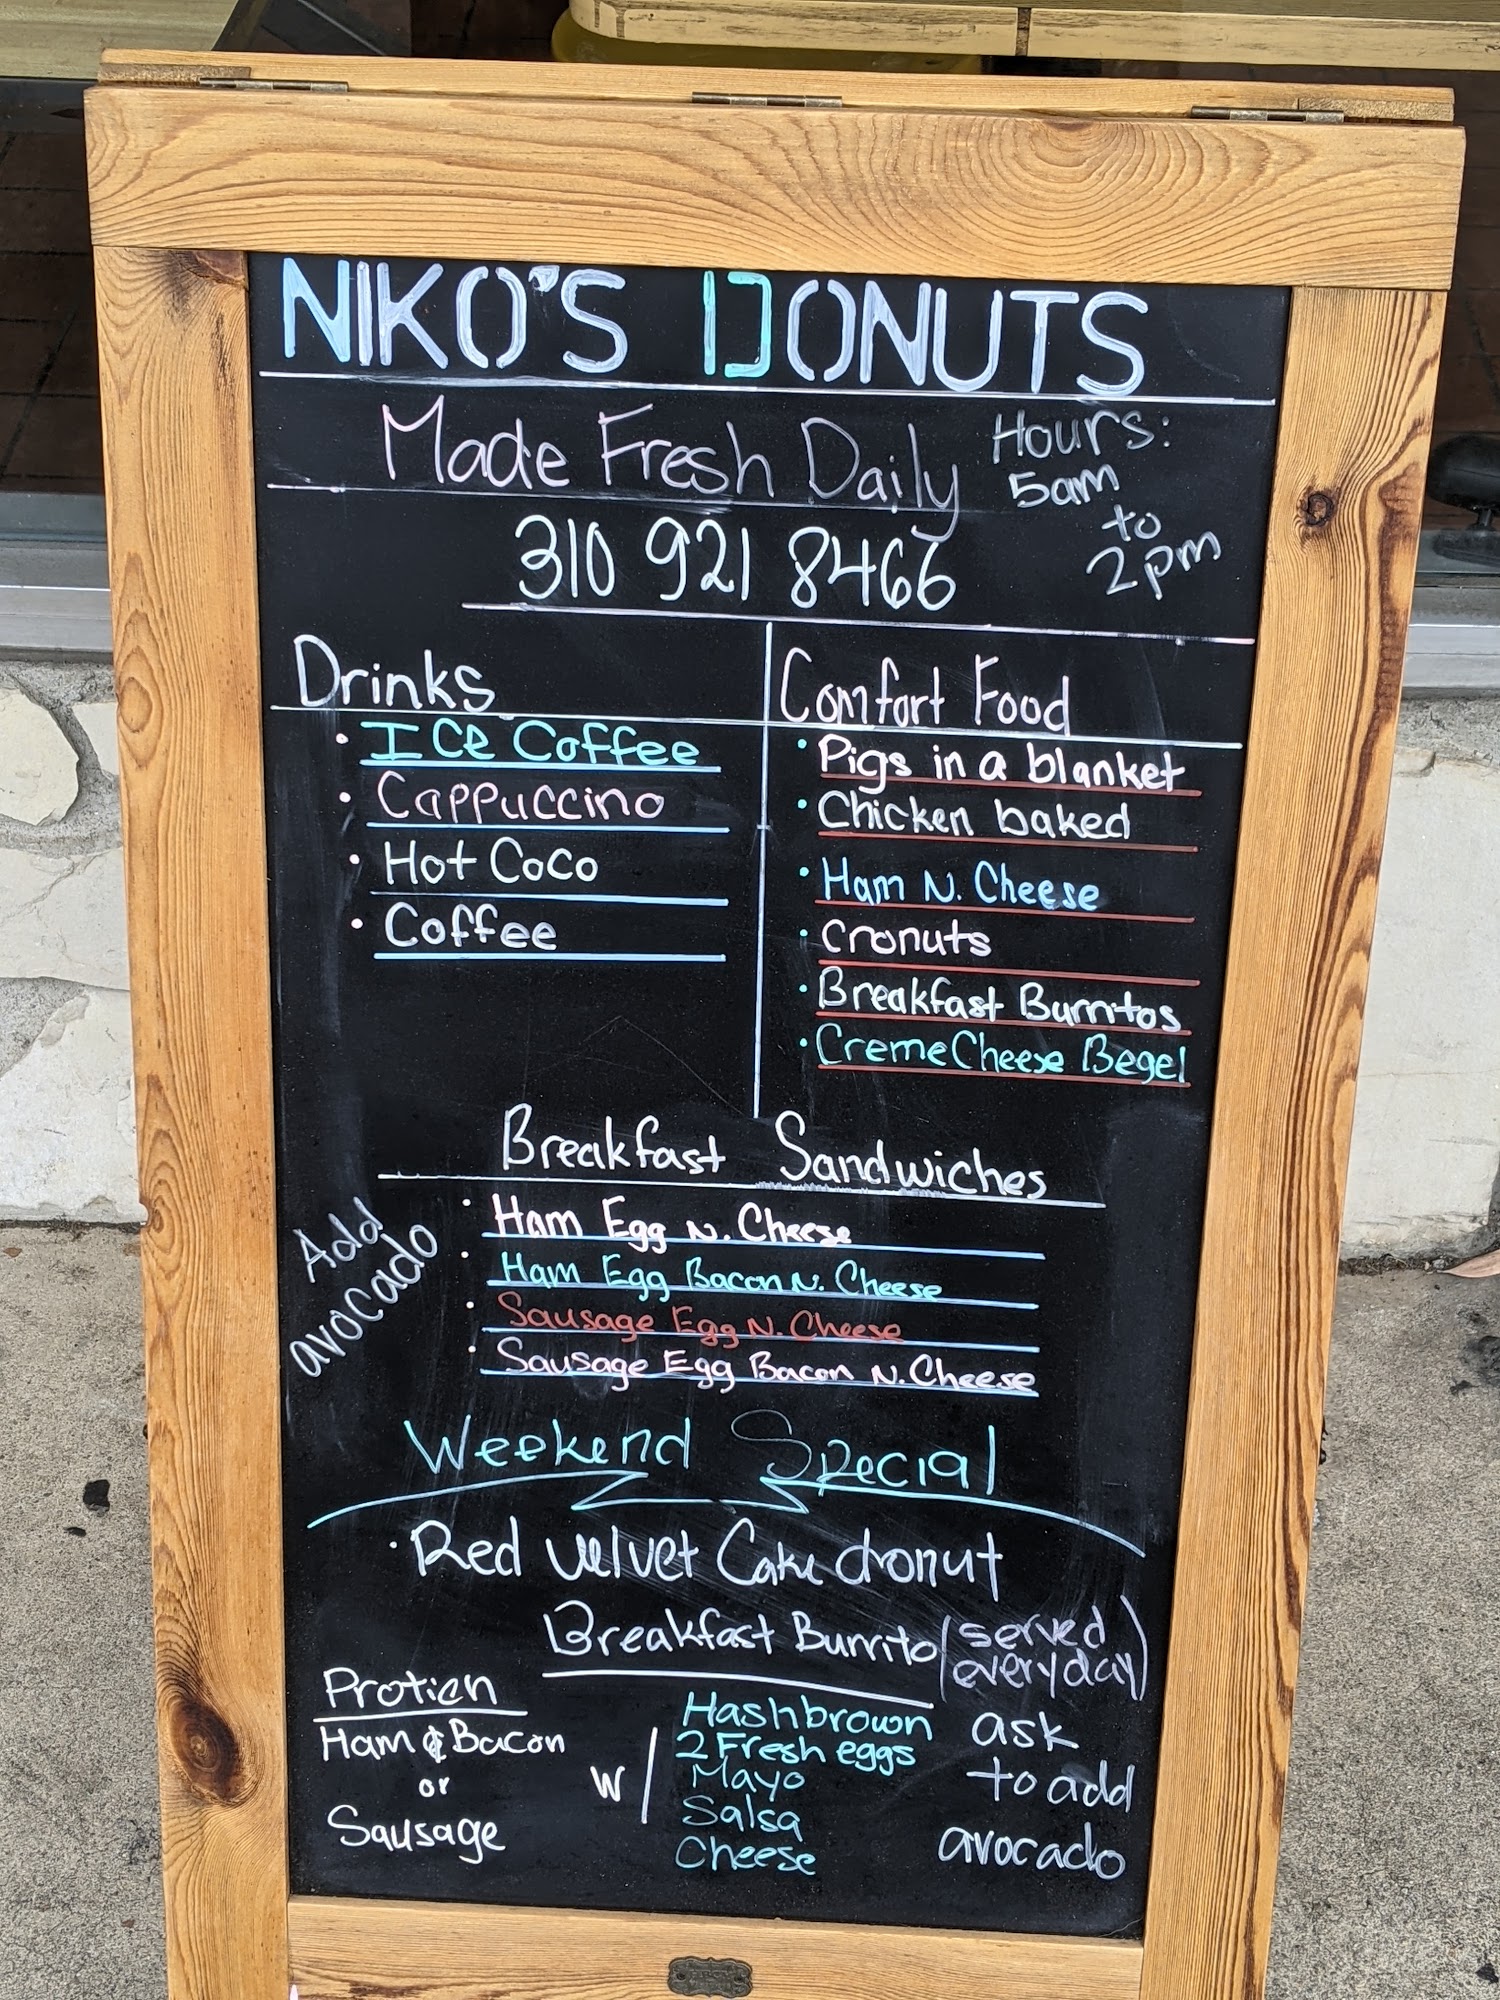 NIKO'S DONUTS
Made Fresh Daily
Hours:
5am
to
2pm
310 921 8466
Drinks
· ICE Coffee
· Cappuccino
· Hot Coco
· Coffee
Comfort Food
· Pigs in a blanket
· Chicken baked
· Ham N. Cheese
· Cronuts
· Breakfast Burritos
· Creme Cheese Begel
Breakfast Sandwiches
Add
avocado
· Ham Egg N. Cheese
· Ham Egg Bacon N. Cheese
· Sausage Egg N. Cheese
· Sausage Egg Bacon N. Cheese
Weekend Special
· Red Velvet Cake donut
Breakfast Burrito (served
everyday)
Protien
Ham & Bacon
or
Sausage
w/
Hashbrown
2 Fresh eggs
Mayo
Salsa
Cheese
ask
to add
avocado